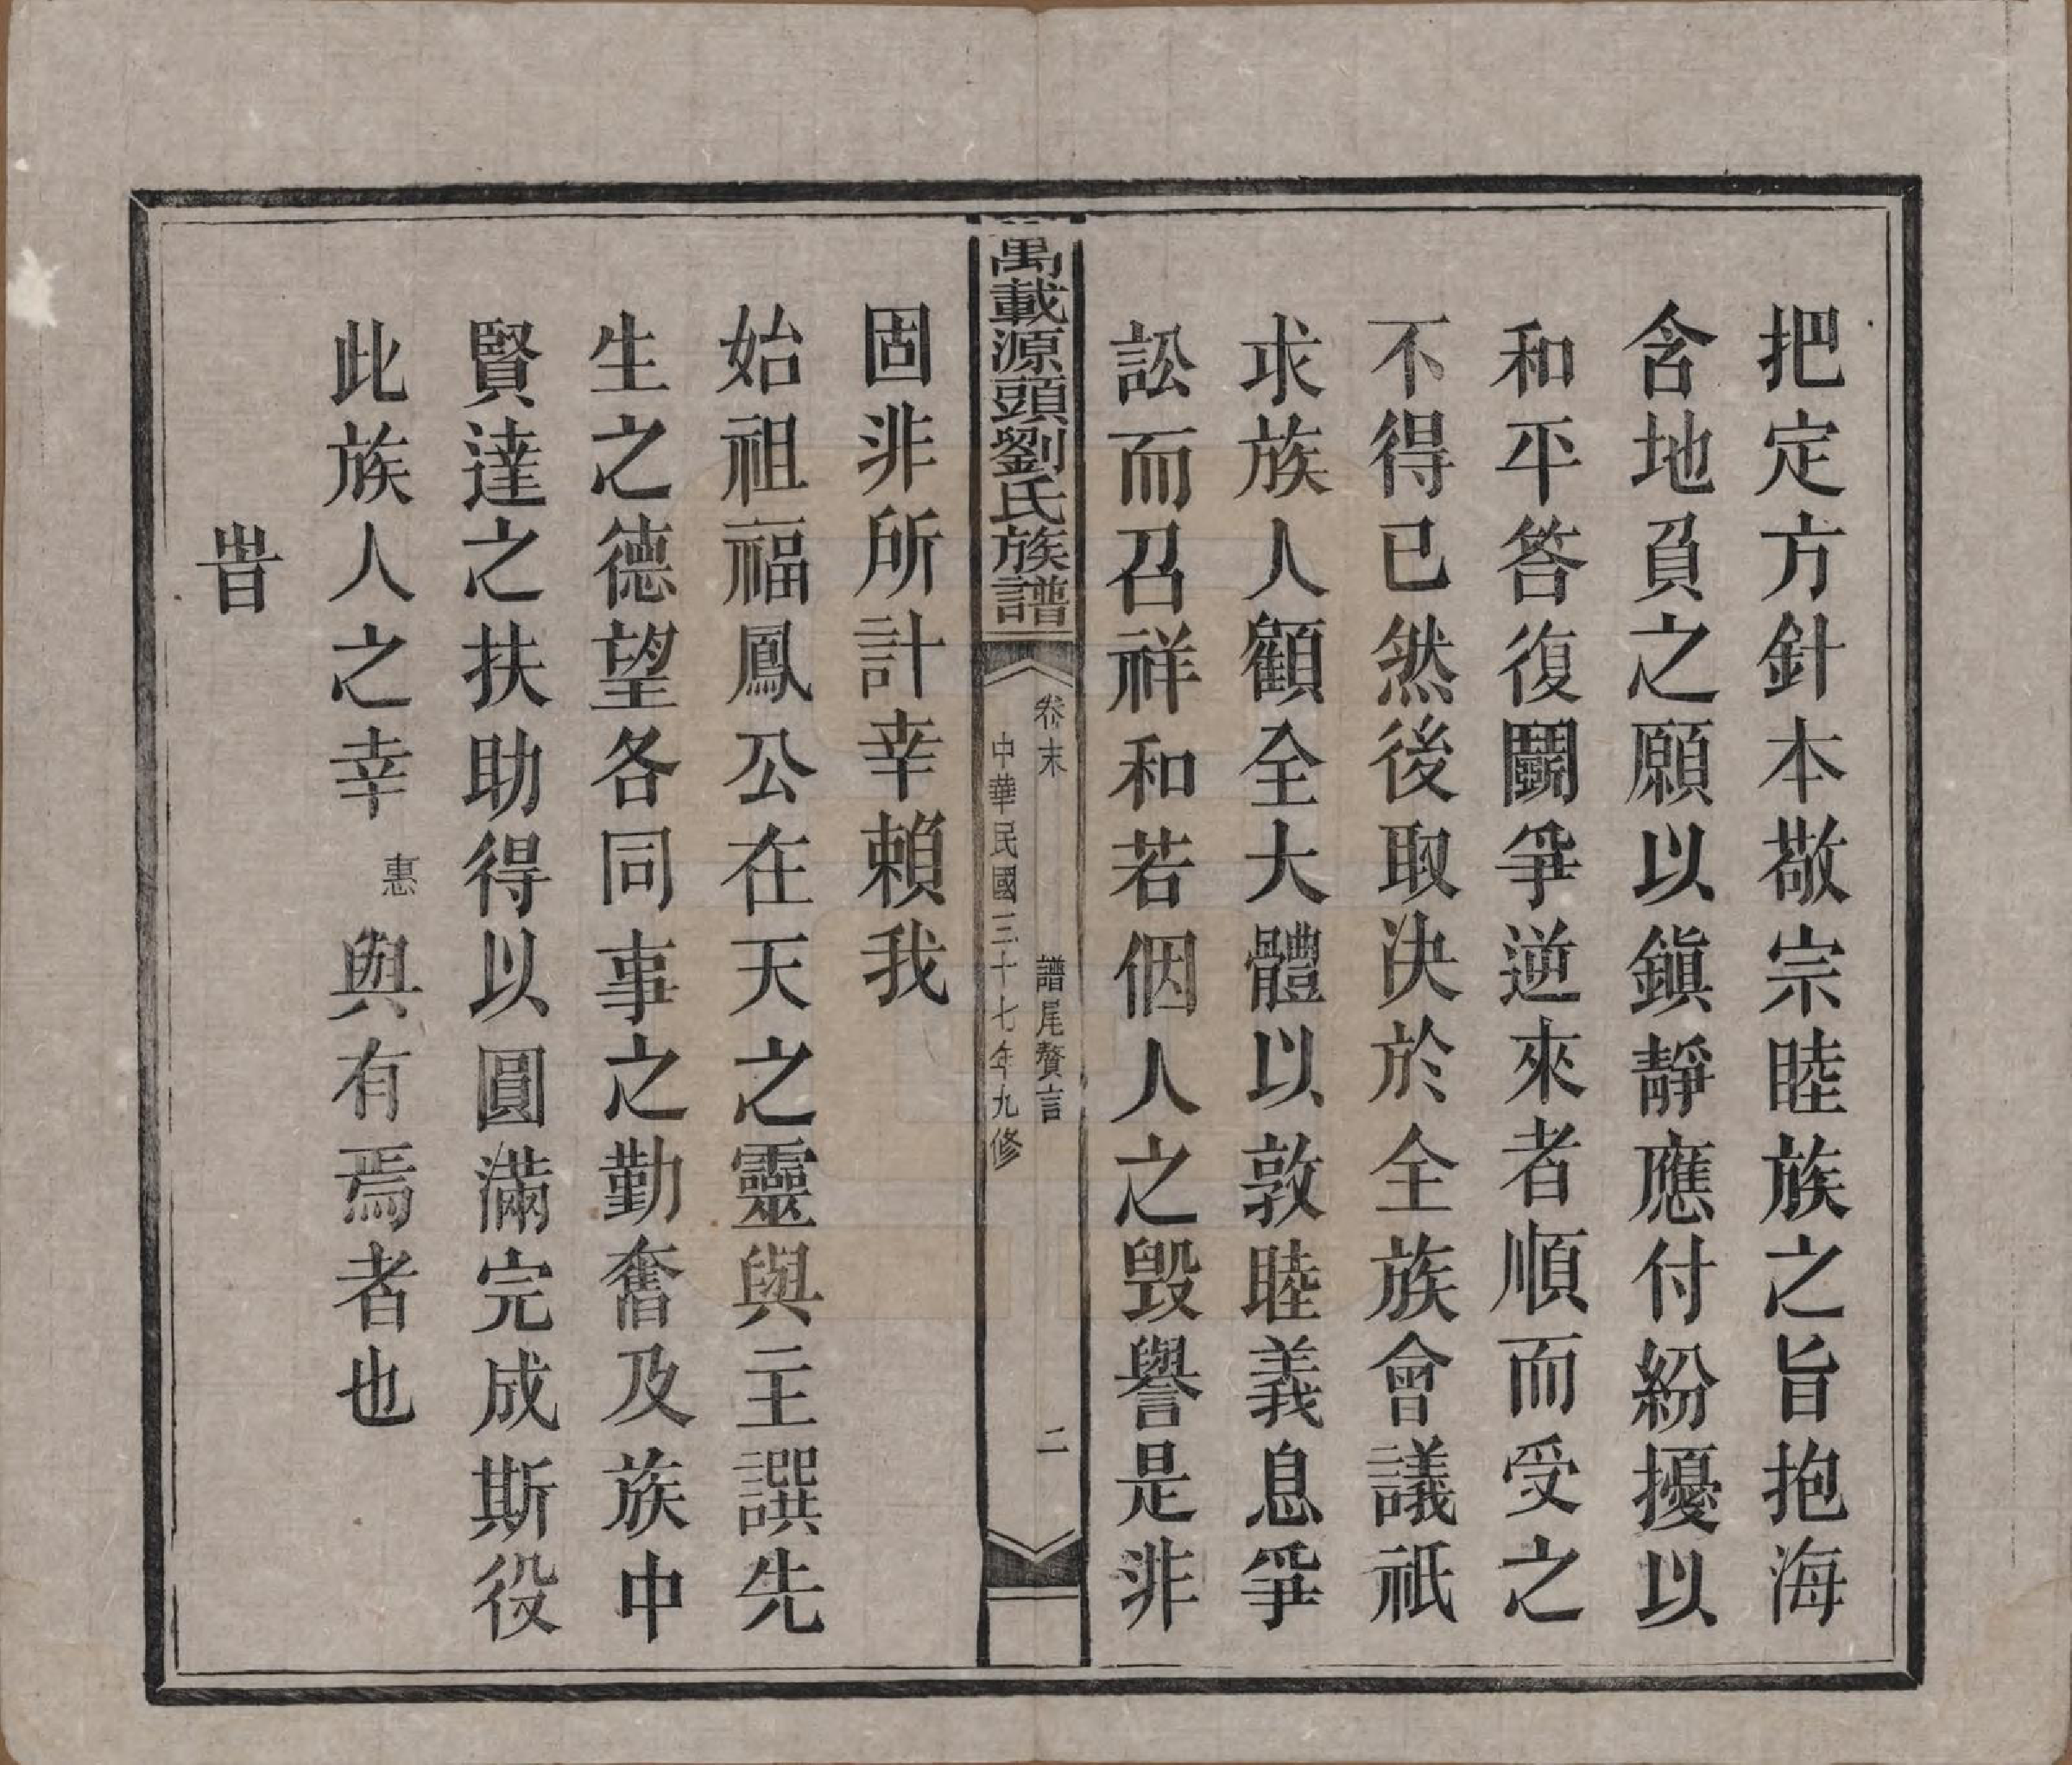 把定方針本敬宗睦族之旨抱海
含地負之願以鎮靜應付紛擾以
和平答復鬭爭逆來者順而受之
不得已然後取決於全族會議祇
求族人顧全大體以敦睦義息爭
訟而召祥和若個人之毀譽是非
萬載源頭劉氏族譜
卷末 譜尾贅言 二
中華民國三十七年九修
固非所計幸賴我
始祖福鳳公在天之靈與主譔先
生之德望各同事之勤奮及族中
賢達之扶助得以圓滿完成斯役
此族人之幸惠與有焉者也
旹